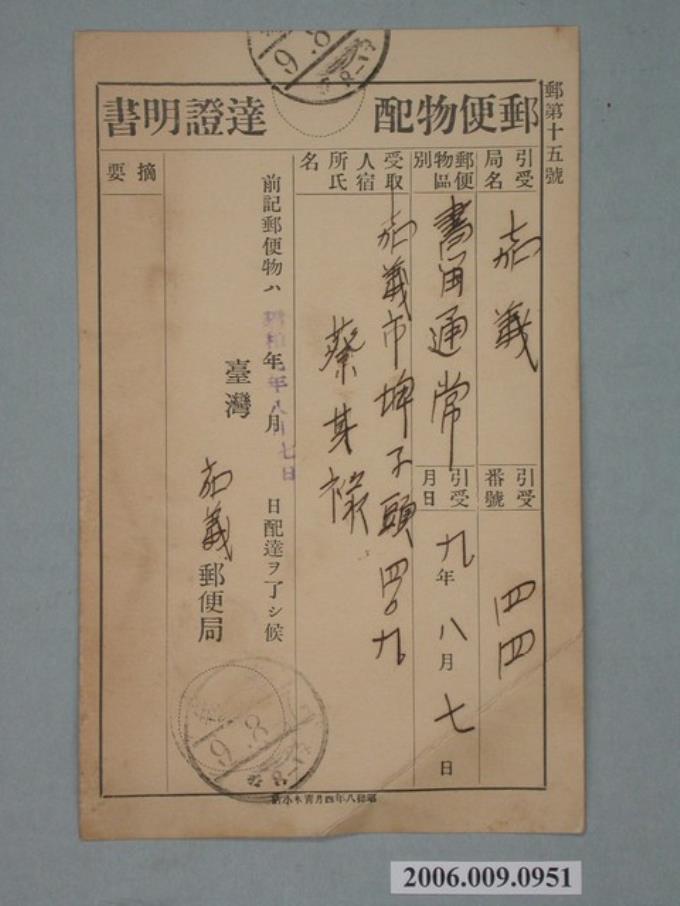 郵第十五號
郵便物配達證明書
引受局名
嘉義
引受番號
四四
郵便物區別
書留通常
引受月日
九年八月七日
受取人宿所氏名
嘉義市埤子頭四〇九
蔡其祿
前記郵便物ハ昭和九年八月七日配達ヲ了シ候
臺灣嘉義郵便局
摘要
9.8
9.8
2006.009.0951